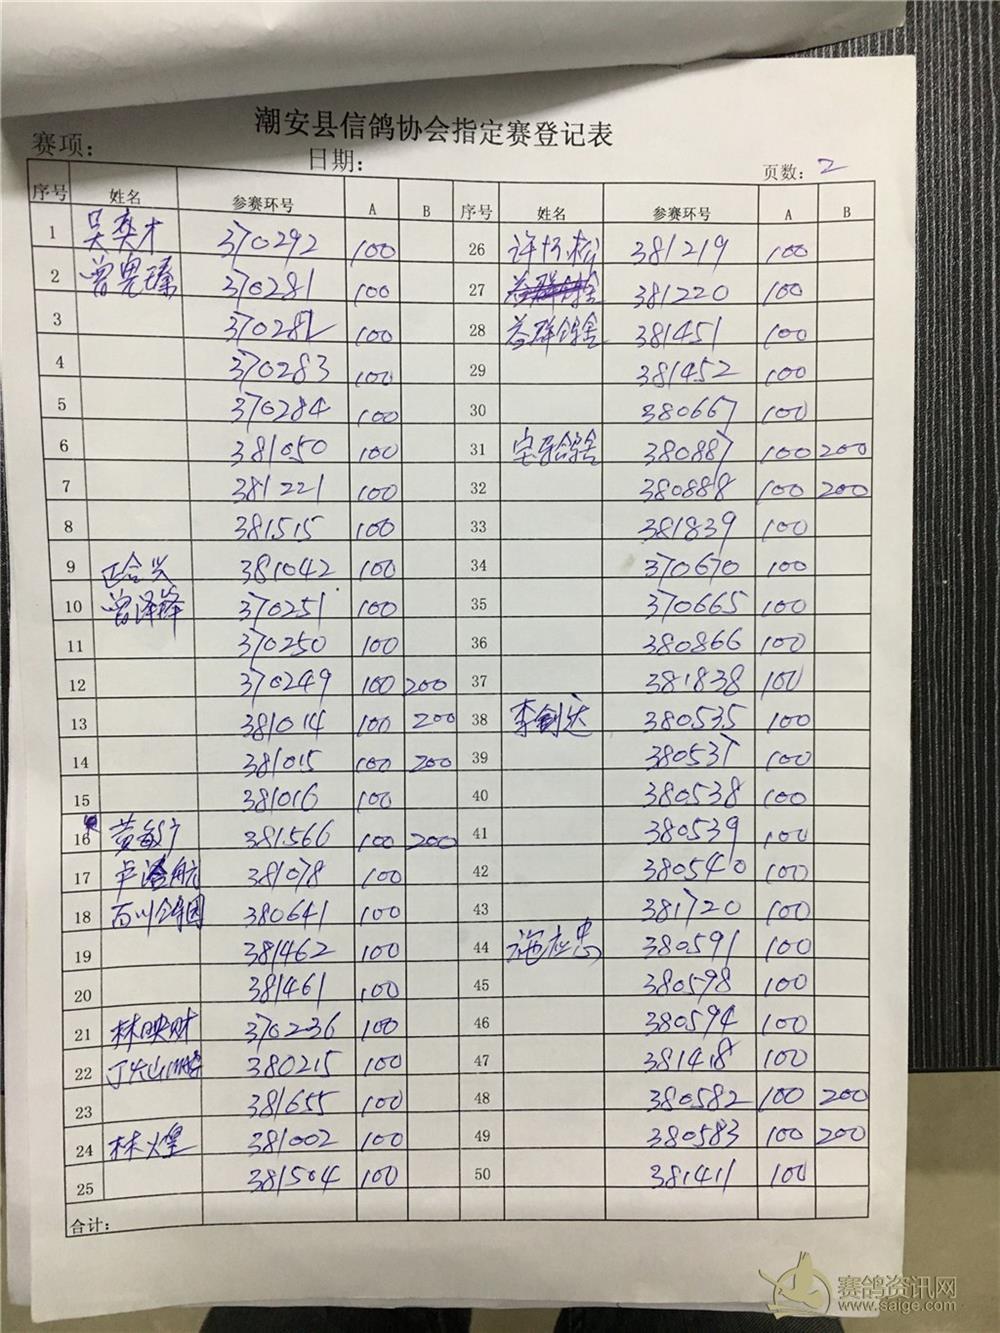 潮安县信鸽协会指定赛登记表
赛项: 日期: 页数: 2
序号 姓名 参赛环号 A B 序号 姓名 参赛环号 A B
1 吴奕才 370292 100 26 许 松 381219 100
2 曾 370281 100 27 381220 100
3 370282 100 28 益群鸽舍 381451 100
4 370283 100 29 381452 100
5 370284 100 30 380667 100
6 381050 100 31 鸽舍 380887 100 200
7 381221 100 32 380888 100 200
8 381515 100 33 381839 100
9 合兴 381042 100 34 370670 100
10 曾泽锋 370251 100 35 370665 100
11 370250 100 36 380866 100
12 370249 100 200 37 381838 100
13 381014 100 200 38 李剑达 380535 100
14 381015 100 200 39 380537 100
15 381016 100 40 380538 100
16 黄 381566 100 200 41 380539 100
17 卢 航 381078 100 42 380540 100
18 百川鸽园 380641 100 43 381720 100
19 381462 100 44 施应忠 380591 100
20 381461 100 45 380598 100
21 林映财 370236 100 46 380594 100
22 380215 100 47 381418 100
23 381655 100 48 380582 100 200
24 林火星 381002 100 49 380583 100 200
25 381504 100 50 381411 100
合计:
赛鸽资讯网
www.saige.com